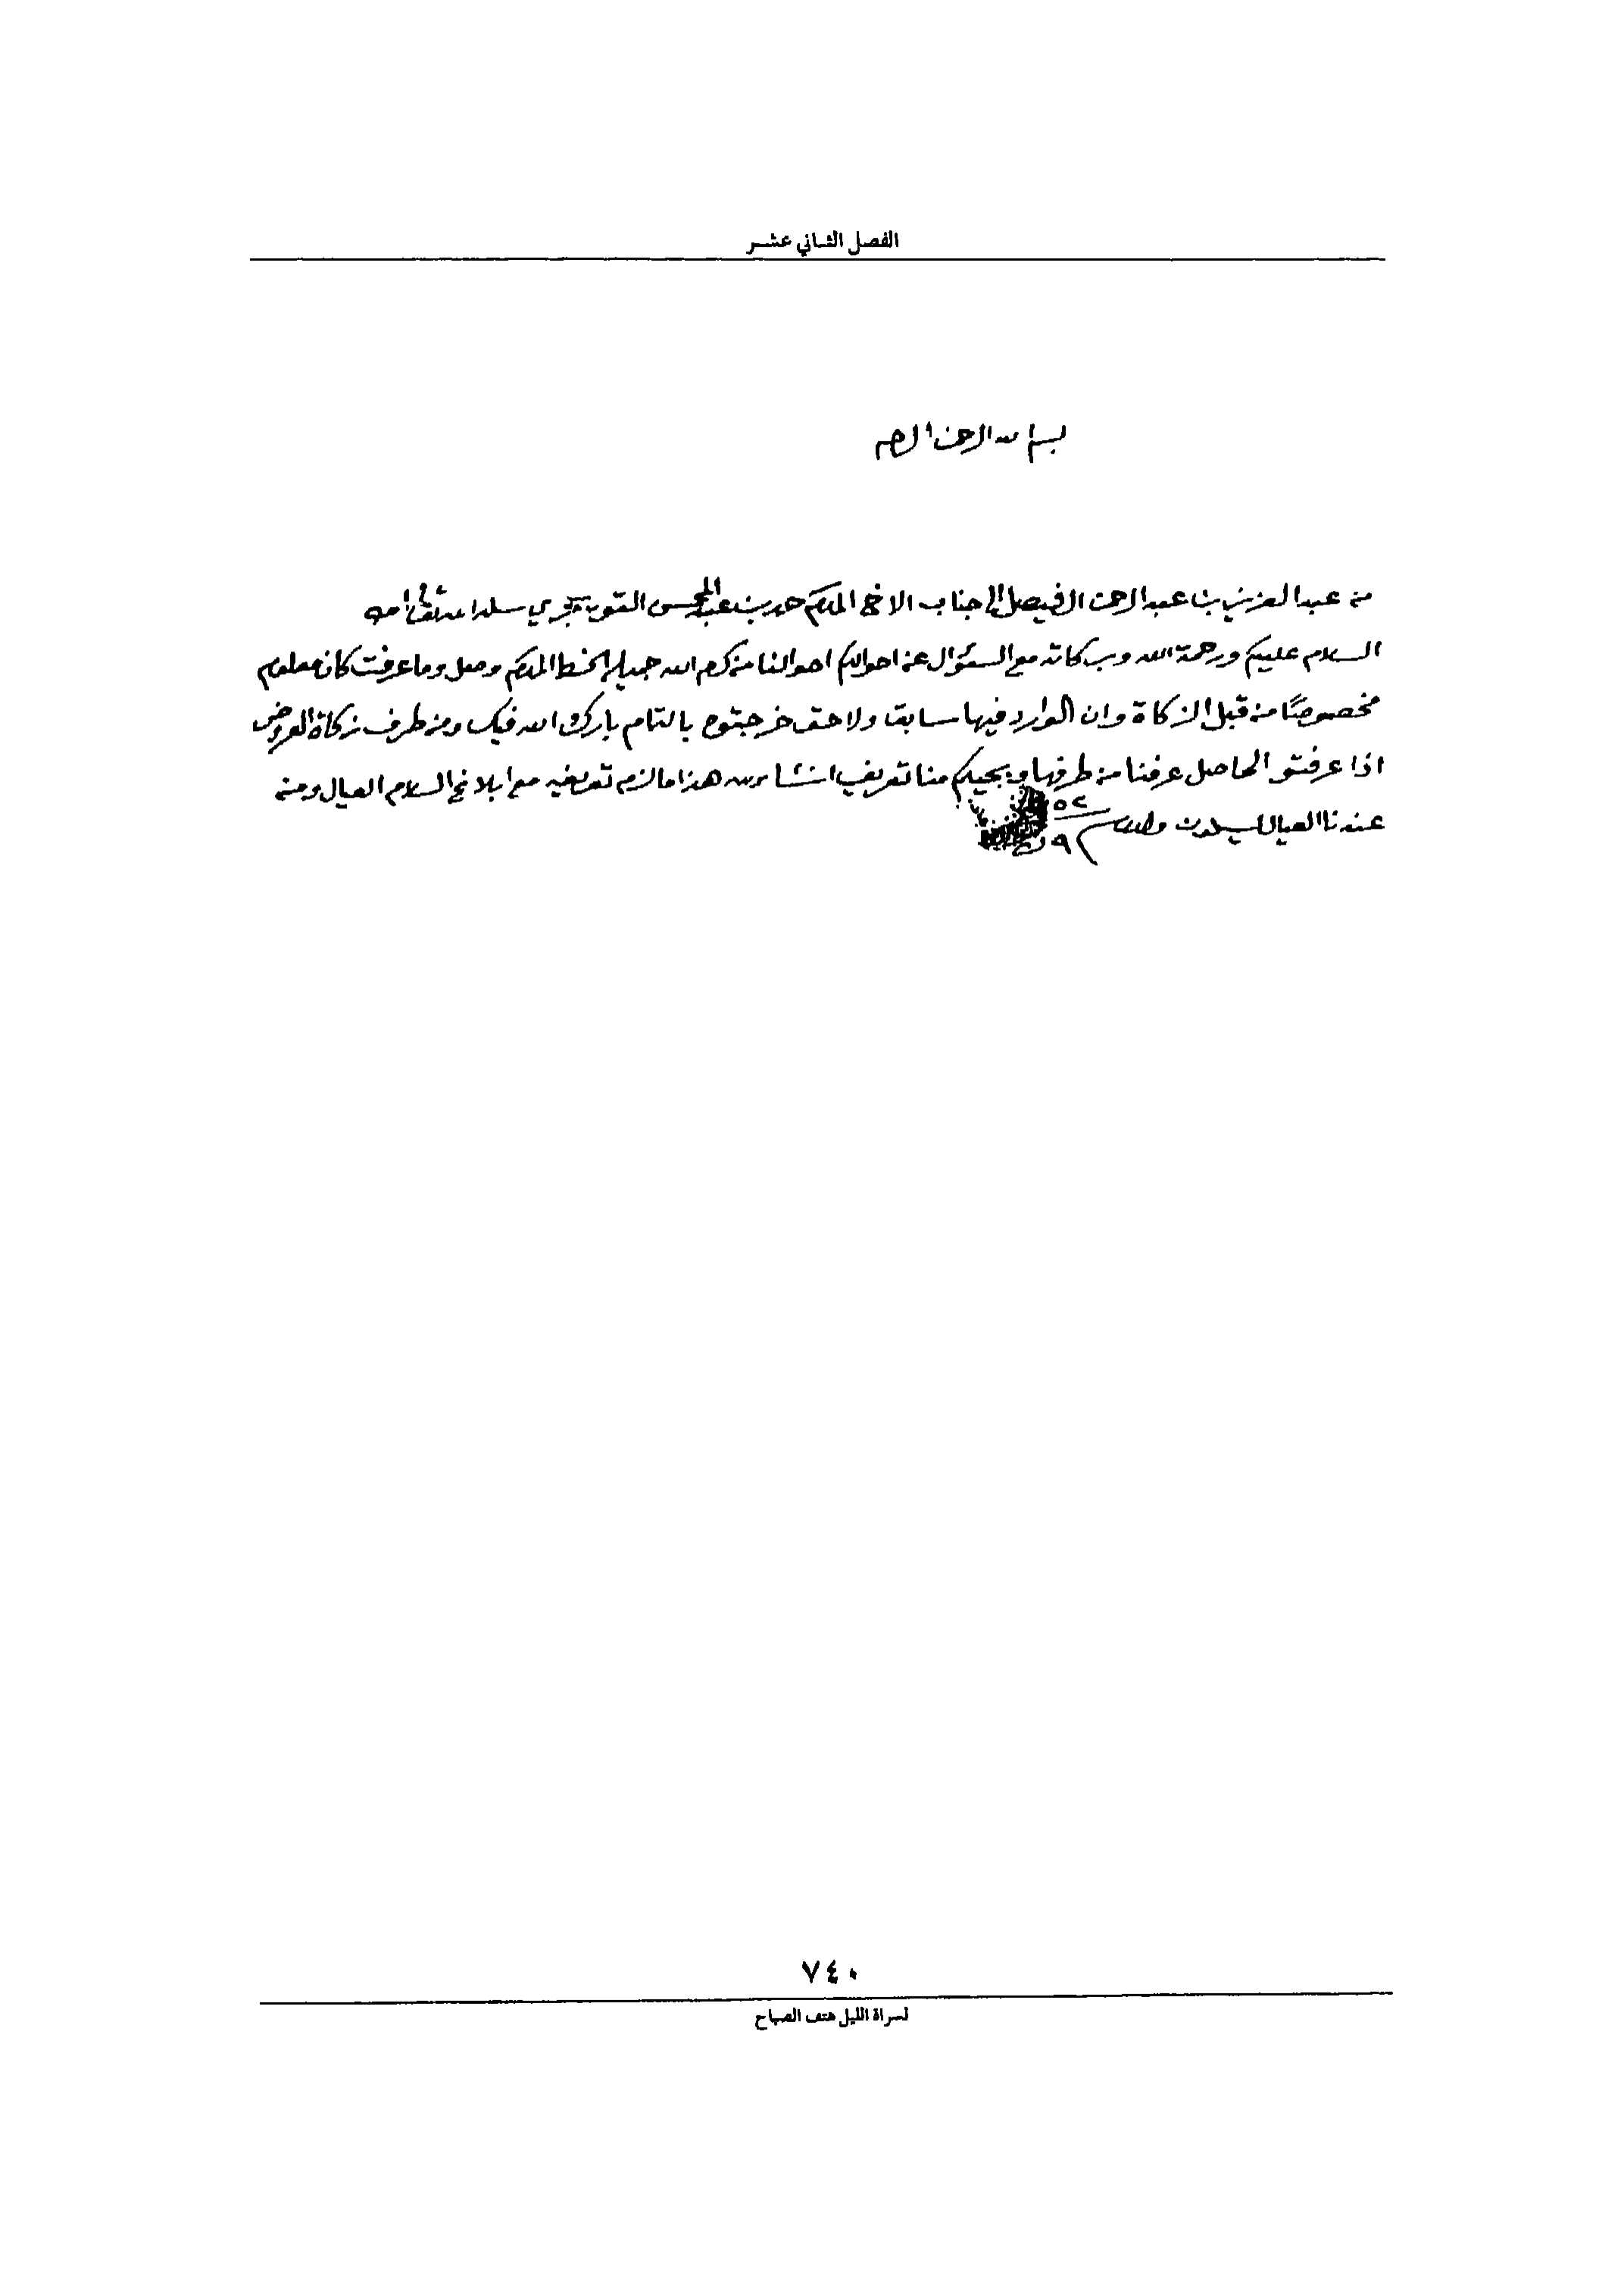 الفصل الثاني عشر
بسم الله الرحمن الرحيم
من عبد العزيز بن عبد الرحمن الفيصل الى جناب الاخ المكرم حمد بن عبد المحسن التويجري سلمه الله تعالى امين
السلام عليكم ورحمة الله وبركاته مع السؤال عن احوالكم احوالنا من كرم الله جميله الخط المكرم وصل وما عرفت كان معلوم
مخصوصًا من قبل الزكاة وان الوارد فيها سابق ولاحق خرجتوه بالتمام بارك الله فيك ومن طرف زكاة العروض
اذا عرفتو الحاصل عرفنا من طرفها ويجيكم منا تعريف انشاء الله هذا ما لزم تعريفه مع ابلاغ السلام العيال ومن
عندنا العيال يسلمون والسلام
٧٤٠
لسراة الليل هتف الصباح